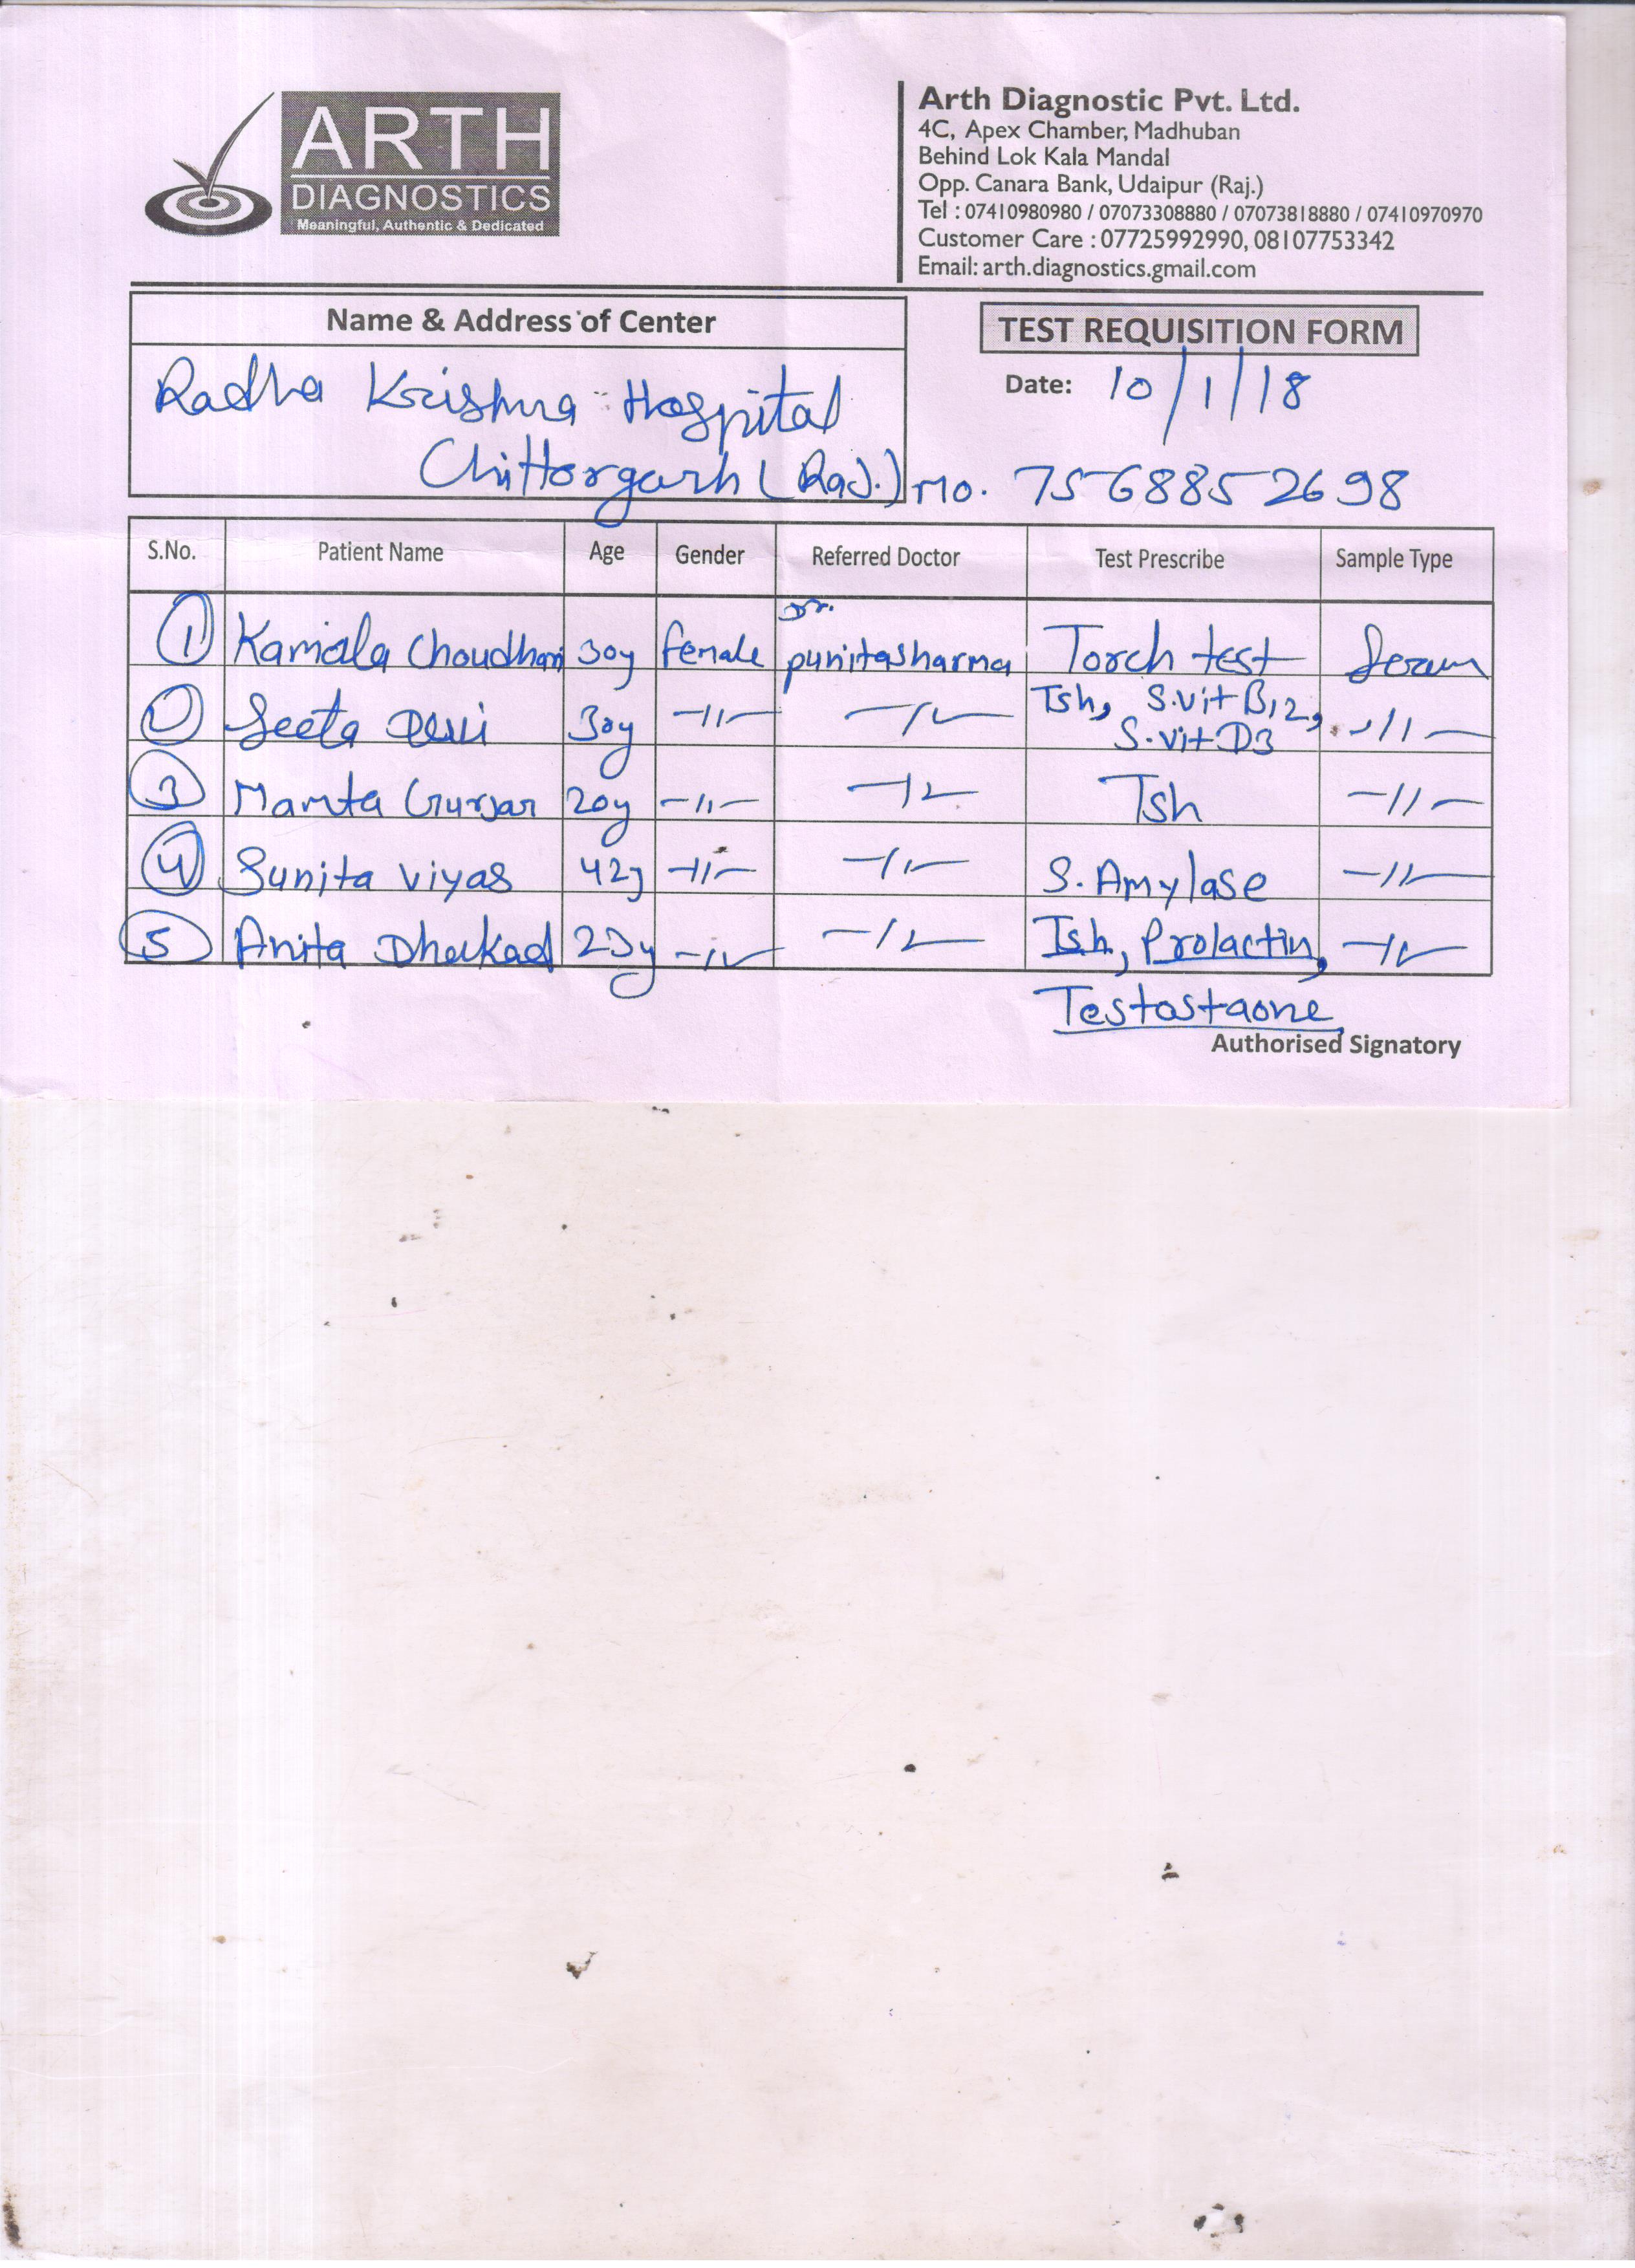 ARTH
DIAGNOSTICS
Meaningful, Authentic & Dedicated
Arth Diagnostic Pvt. Ltd.
4C, Apex Chamber, Madhuban
Behind Lok Kala Mandal
Opp. Canara Bank, Udaipur (Raj.)
Tel : 07410980980 / 07073308880 / 07073818880 / 07410970970
Customer Care : 07725992990, 08107753342
Email: arth.diagnostics.gmail.com
Name & Address of Center
TEST REQUISITION FORM
Date: 10/1/18
Radha Krishna Hospital
Chittorgarh (Raj.) Mo. 7568852698
S.No. Patient Name Age Gender Referred Doctor Test Prescribe Sample Type
1 Kamala Choudhari 30y female Dr. punitasharma Torch test Serum
2 Seeta Devi 30y -11- -11- Tsh, S.vit B12, S.vit D3 -11-
3 Mamta Gurjar 20y -11- -11- Tsh -11-
4 Sunita Viyas 42y -11- -11- S. Amylase -11-
5 Anita Dhakad 23y -11- -11- Tsh, Prolactin, -11-
Testostaone
Authorised Signatory